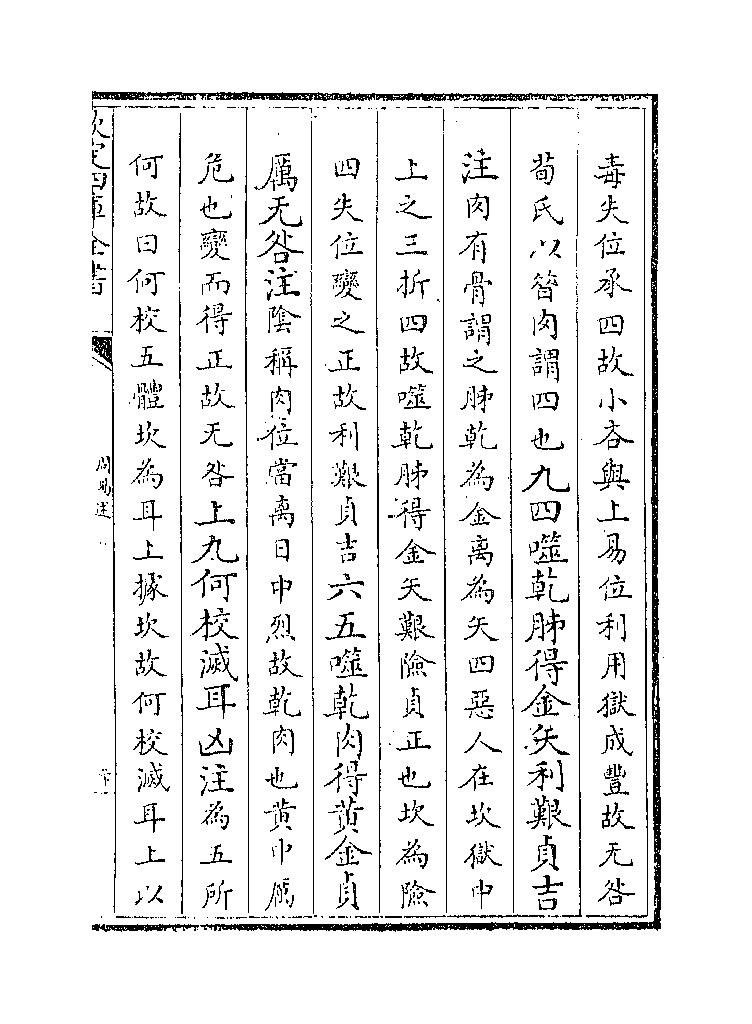 毒失位承四故小吝與上易位利用獄成豐故无咎
荀氏以簮肉謂四也九四噬乾胏得金矢利艱貞吉
注肉有骨謂之胏乾為金離為矢四惡人在坎獄中
上之三折四故噬乾胏得金矢艱險貞正也坎為險
四失位變之正故利艱貞吉六五噬乾肉得黄金貞
厲无咎注陰稱肉位當離日中烈故乾肉也黄中厲
危也變而得正故无咎上九何校滅耳凶注為五所
何故曰何校五體坎為耳上據坎故何校滅耳上以
欽定四庫全書
周易述